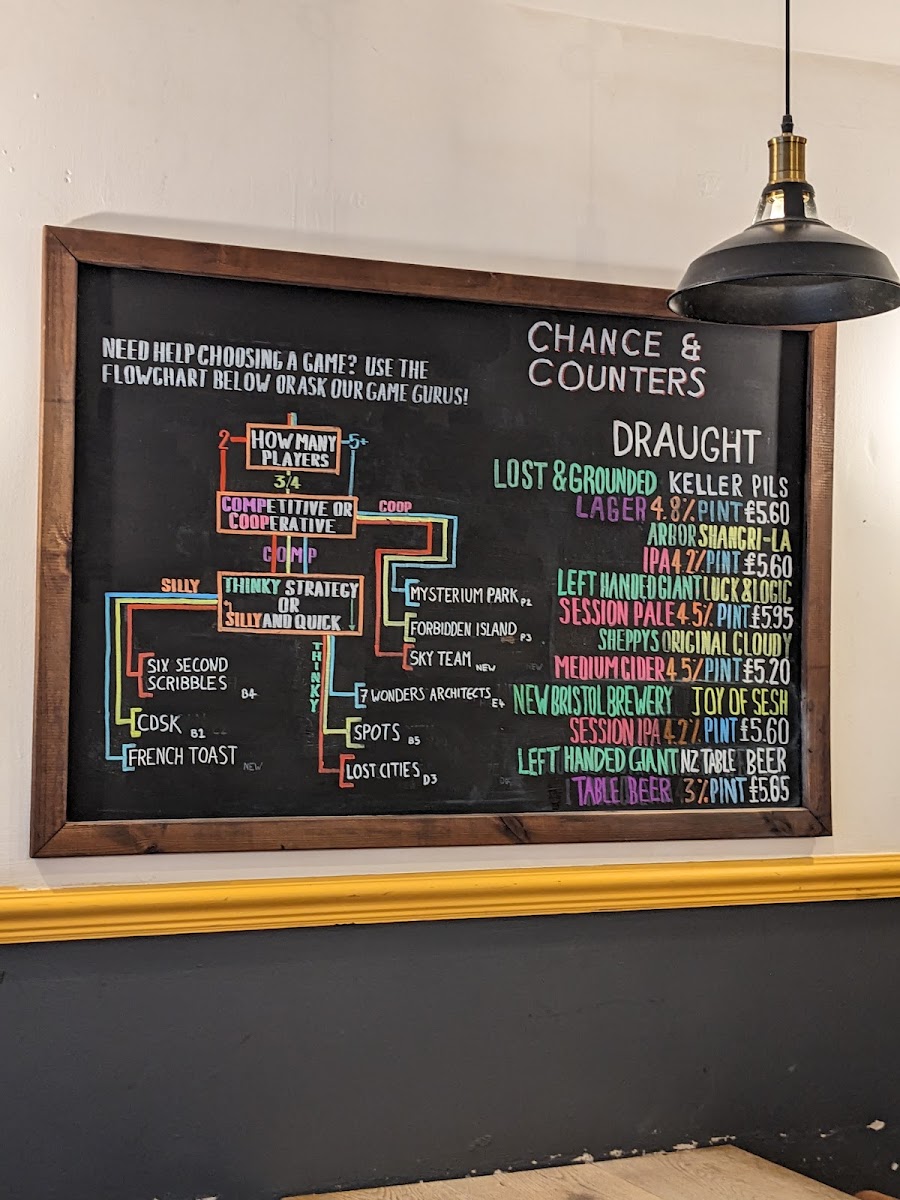 NEED HELP CHOOSING A GAME? USE THE
FLOWCHART BELOW OR ASK OUR GAME GURUS!
2
HOW MANY
PLAYERS
5+
3/4
COMPETITIVE OR
COOPERATIVE
COOP
COMP
SILLY
THINKY STRATEGY
OR
SILLY AND QUICK
THINKY
MYSTERIUM PARK P2
FORBIDDEN ISLAND P3
SKY TEAM NEW
SIX SECOND
SCRIBBLES B4
CDSK B1
FRENCH TOAST NEW
7 WONDERS ARCHITECTS E4
SPOTS B5
LOST CITIES D3
CHANCE &
COUNTERS
DRAUGHT
LOST & GROUNDED KELLER PILS
LAGER 4.8% PINT £5.60
ARBOR SHANGRI-LA
IPA 4.2% PINT £5.60
LEFT HANDED GIANT LUCK & LOGIC
SESSION PALE 4.5% PINT £5.95
SHEPPYS ORIGINAL CLOUDY
MEDIUM CIDER 4.5% PINT £5.20
NEW BRISTOL BREWERY JOY OF SESH
SESSION IPA 4.2% PINT £5.60
LEFT HANDED GIANT NZ TABLE BEER
TABLE BEER 3% PINT £5.65